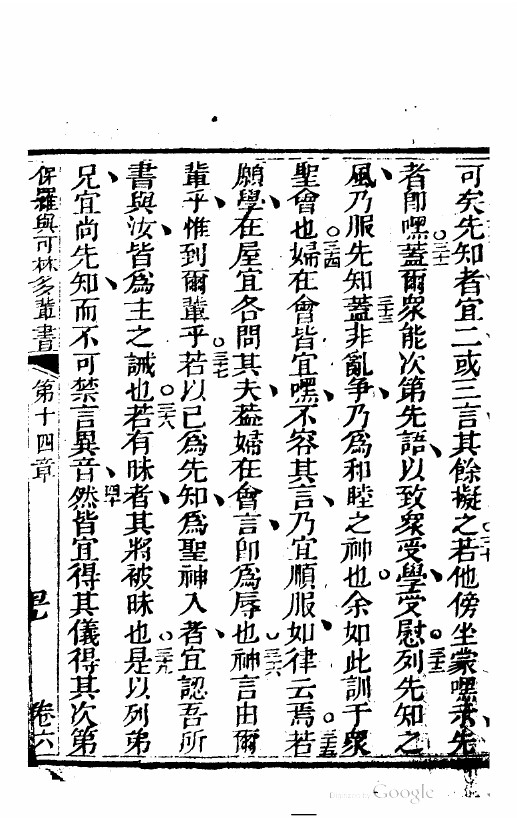 可矣先知者宜二或三言其餘擬之。三十若他傍坐蒙嘿示先
者即嘿。三十一蓋爾衆能次第先語以致衆受學受慰。三十二列先知之
風乃服先知。三十三蓋非亂爭乃爲和睦之神也。余如此訓于衆
聖會也。三十四婦在會皆宜嘿不容其言乃宜順服如律云焉。三十五若
願學在屋宜各問其夫葢婦在會言即爲辱也。三十六神言由爾
輩乎惟到爾輩乎。三十七若以己爲先知爲聖神入者宜認吾所
書與汝皆爲主之誡也。三十八若有昧者其將被昧也。三十九是以列弟
兄宜尚先知而不可禁言異音。四十然皆宜得其儀得其次第
保羅與可林多輩書 第十四章 卷六
Digitized by Google